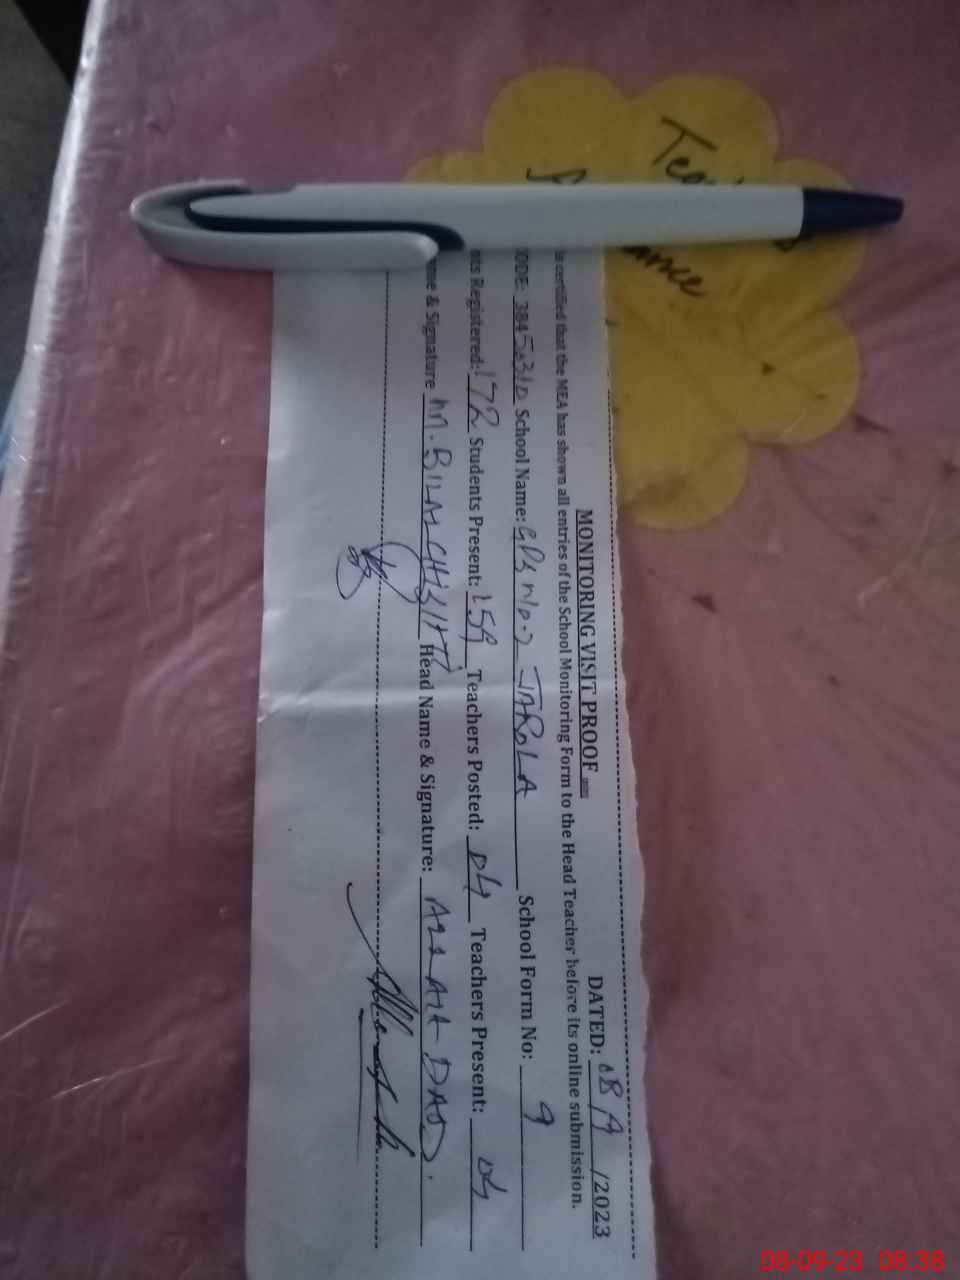 MONITORING VISIT PROOF DATED: 08/9/2023
is certified that the MEA has shown all entries of the School Monitoring Form to the Head Teacher before its online submission.
ODE: 38450310 School Name: GPS NO.2 JAROLA School Form No: 9
nts Registered: 172 Students Present: 159 Teachers Posted: 04 Teachers Present: 04
me & Signature M. BILAL Head Name & Signature:
08-09-23 08:38